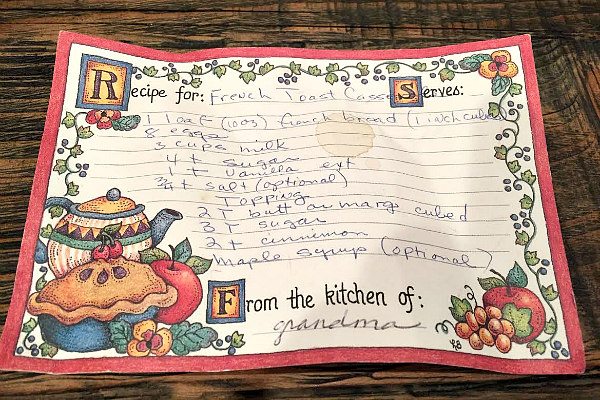 Recipe for: French Toast Casse Serves:
1 loaf (10oz) french bread (1 inch cubed)
8 eggs
3 cups milk
4 t sugar
1 t vanilla ext
3/4 t salt (optional)
Topping
2 T butt or marg cubed
3 T sugar
2 t cinnimon
Maple syrup (optional)
From the kitchen of:
grandma